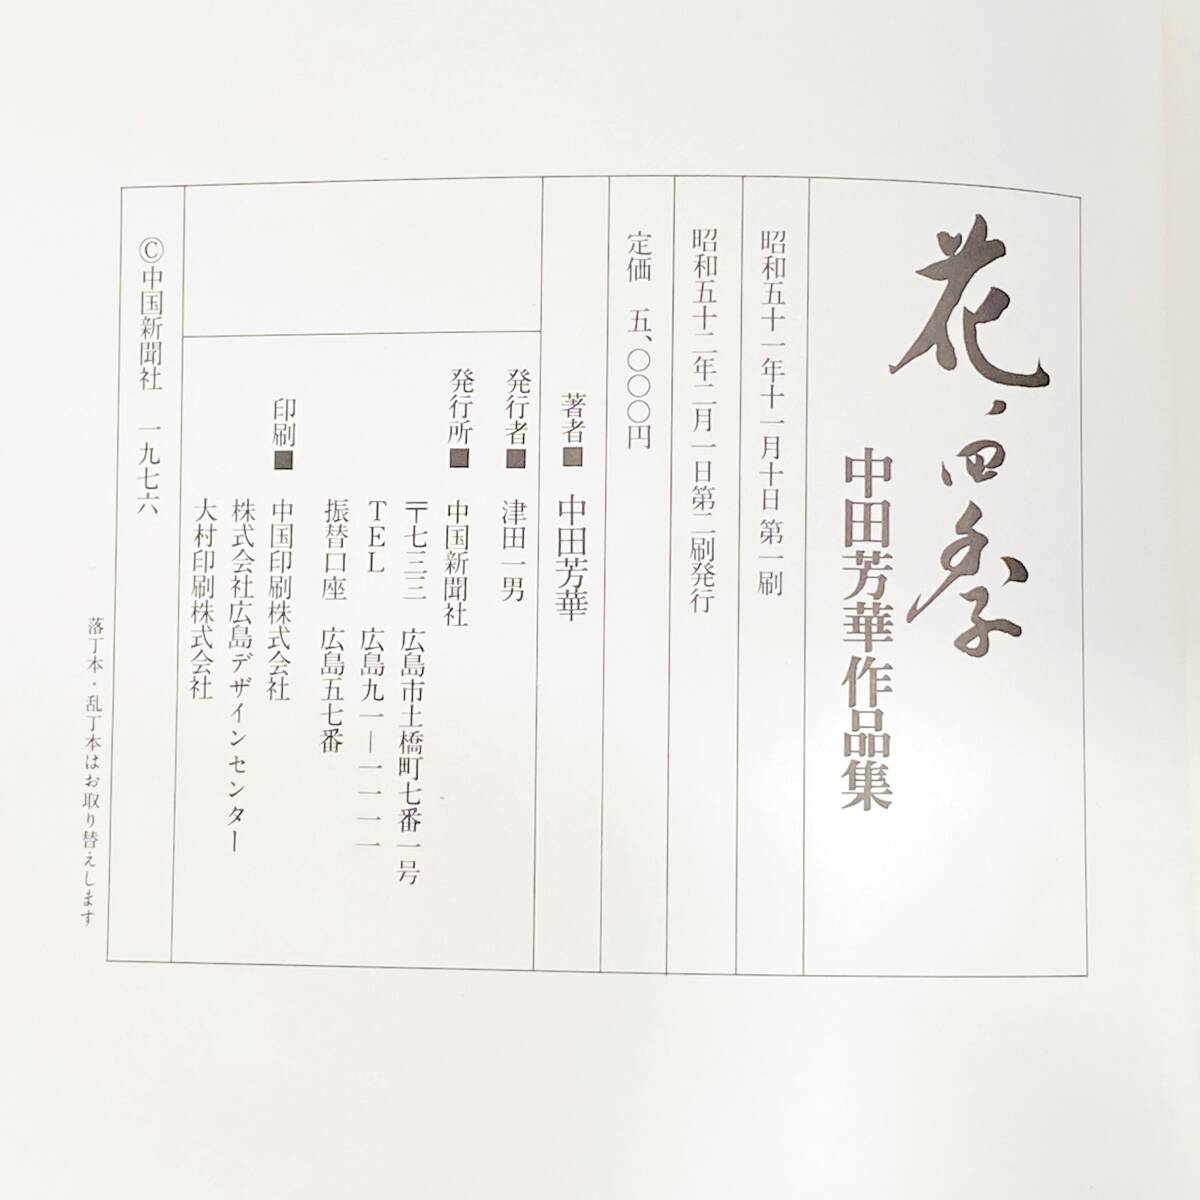 花・四季
中田芳華作品集
昭和五十一年十一月十日 第一刷
昭和五十二年二月一日第二刷発行
定価 五、〇〇〇円
著者■ 中田芳華
発行者■ 津田一男
発行所■ 中国新聞社
〒七三三 広島市土橋町七番一号
TEL 広島九一―一一一一
振替口座 広島五七番
印刷■ 中国印刷株式会社
株式会社広島デザインセンター
大村印刷株式会社
©中国新聞社 一九七六
落丁本・乱丁本はお取り替えします